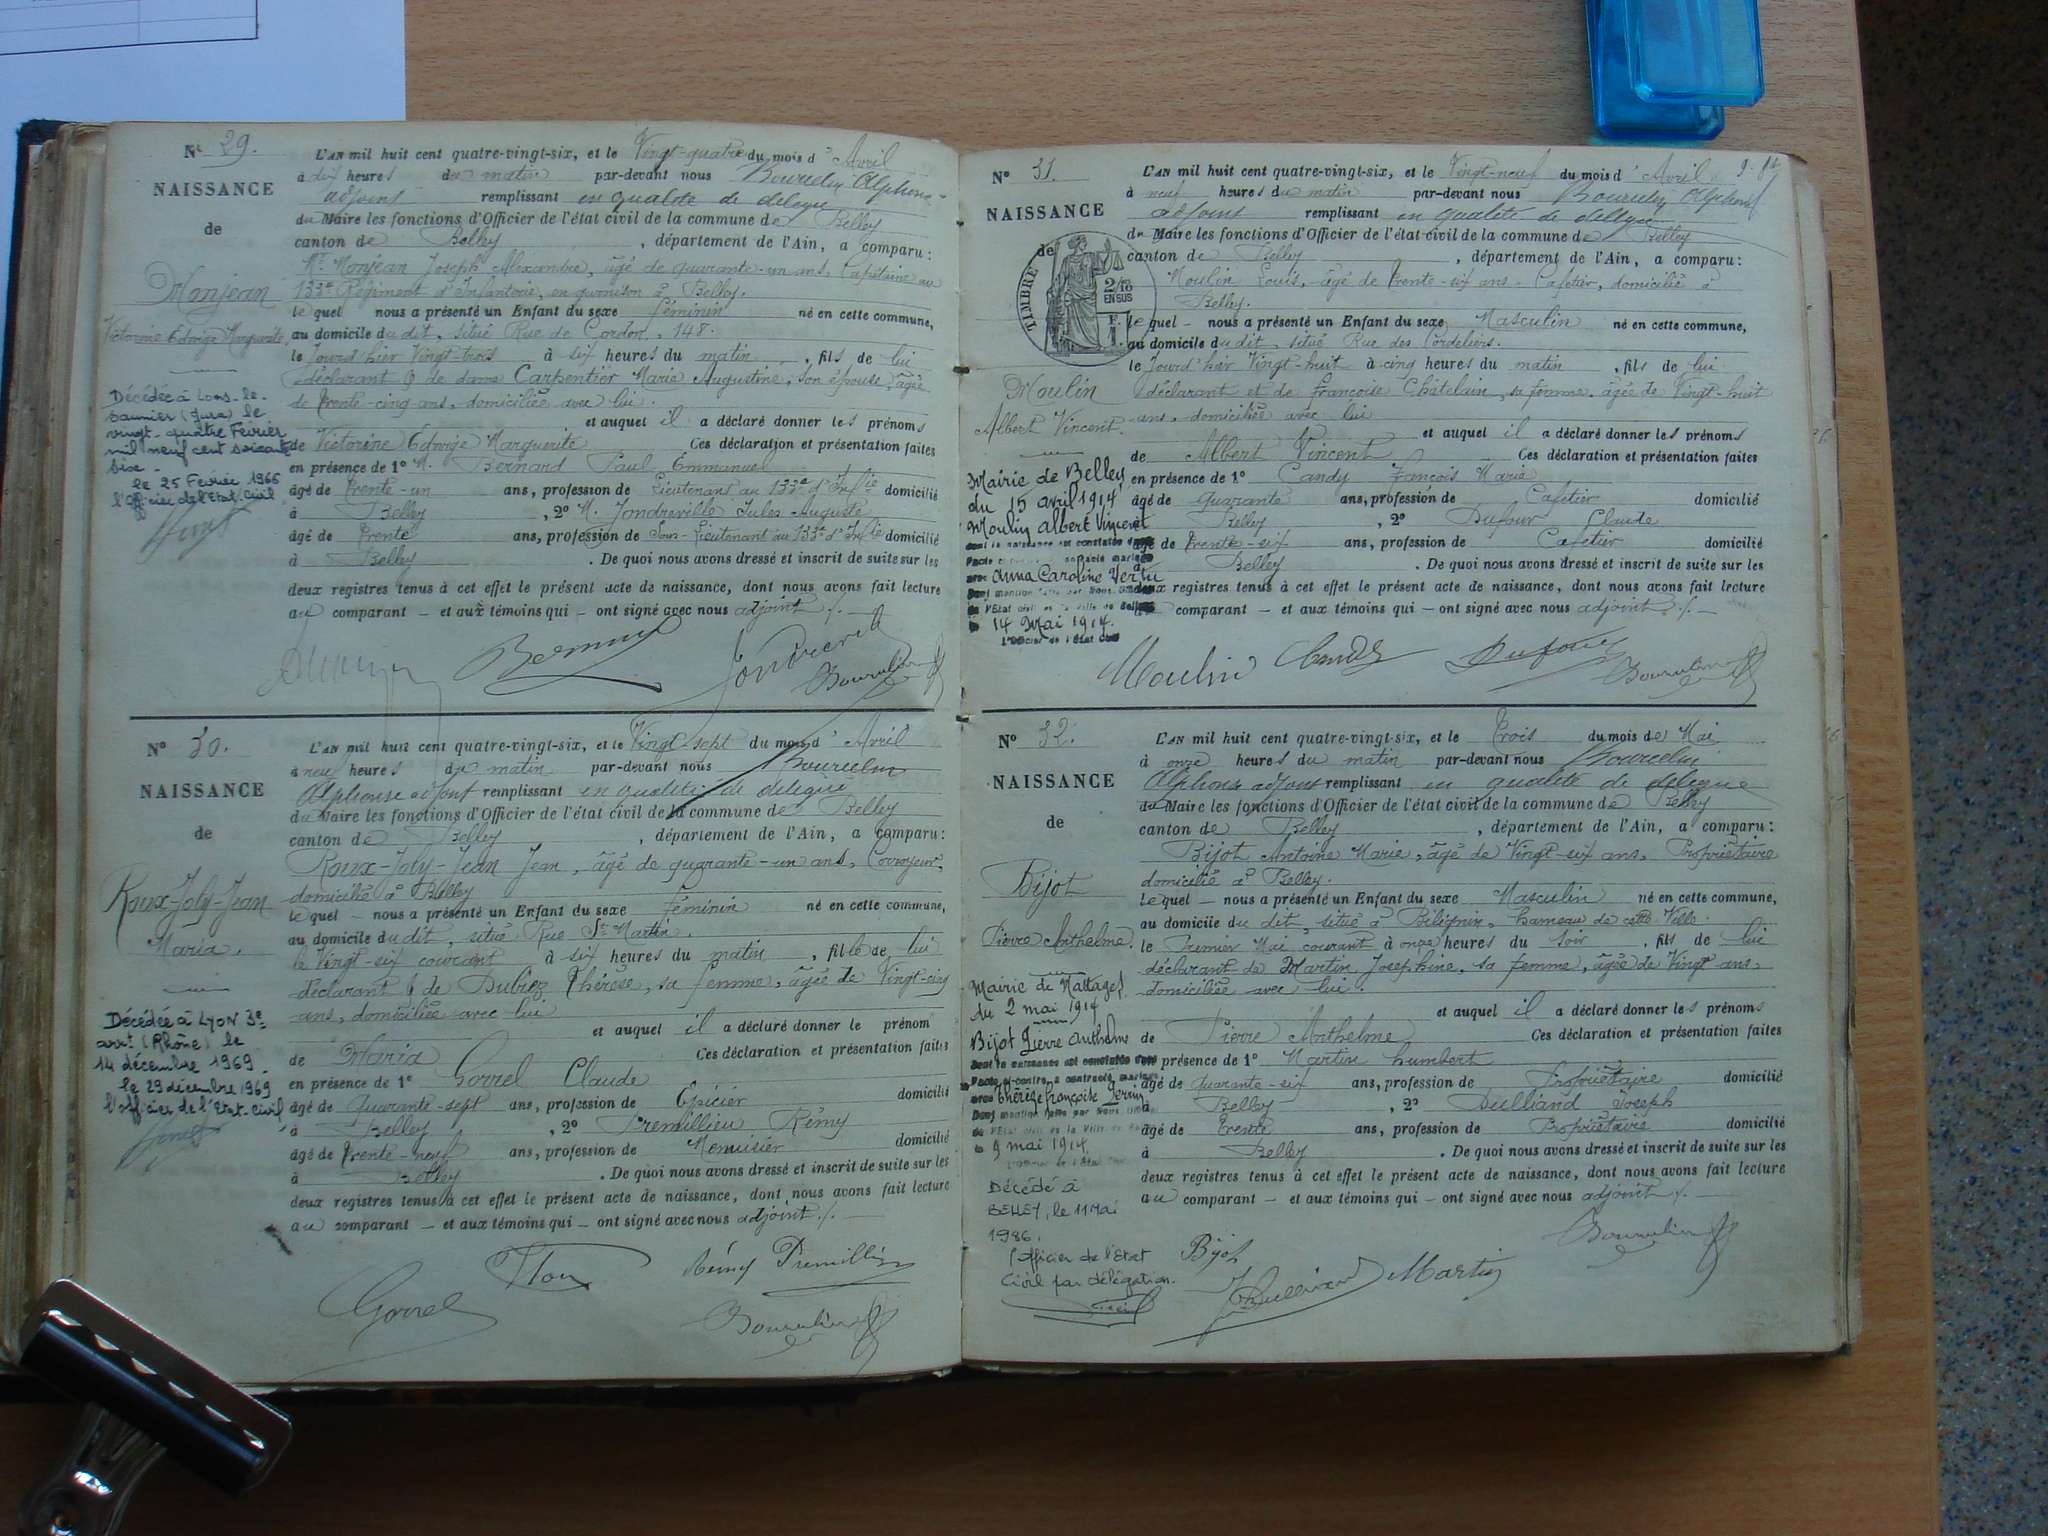 N° 29.
NAISSANCE
de
Monjean
Victorine Edwige Marguerite
Décédée à Lons-le-
Saunier (Jura) le
vingt-quatre Février
mil neuf cent soixante
six.
le 25 Février 1966
l'Officier de l'Etat-Civil
L'AN mil huit cent quatre-vingt-six, et le Vingt-quatre du mois d'Avril
à dix heures du matin par-devant nous Bourdin Alphonse
adjoint remplissant en qualité de délégué
du Maire les fonctions d'Officier de l'état civil de la commune de Belley
canton de Belley, département de l'Ain, a comparu:
Mr Monjean Joseph Alexandre, âgé de quarante-un ans, Capitaine au
133e Régiment d'Infanterie, en garnison à Belley.
lequel nous a présenté un Enfant du sexe féminin né en cette commune,
au domicile du dit, situé Rue de Cordon, 148.
le Jourd'hier Vingt-trois à six heures du matin, fils de lui
déclarant & de dame Carpentier Marie Augustine, son épouse, âgée
de trente-cinq ans, domiciliée avec lui.
et auquel il a déclaré donner les prénoms
de Victorine Edwige Marguerite Ces déclaration et présentation faites
en présence de 1° M. Bernard Paul Emmanuel
âgé de trente-un ans, profession de Lieutenant au 133e d'Infie domicilié
à Belley, 2° M. Jondreville Jules Auguste
âgé de trente ans, profession de Sous-Lieutenant au 133e d'Infie domicilié
à Belley. De quoi nous avons dressé et inscrit de suite sur les
deux registres tenus à cet effet le présent acte de naissance, dont nous avons fait lecture
au comparant – et aux témoins qui – ont signé avec nous adjoint ./.
N° 30.
NAISSANCE
de
Roux-Joly-Jean
Maria.
Décédée à LYON 3e
arrt (Rhône) le
14 décembre 1969.
le 29 décembre 1969
l'officier de l'Etat-Civil
L'AN mil huit cent quatre-vingt-six, et le Vingt-sept du mois d'Avril
à neuf heures du matin par-devant nous
Alphonse adjoint remplissant en qualité de délégué
du Maire les fonctions d'Officier de l'état civil de la commune de Belley
canton de Belley, département de l'Ain, a comparu:
Roux-Joly-Jean Jean, âgé de quarante-un ans, Corroyeur,
domicilié à Belley
lequel – nous a présenté un Enfant du sexe féminin né en cette commune,
au domicile du dit, situé Rue St Martin.
le Vingt-six courant à six heures du matin, fille de lui
déclarant & de Thérèse, sa femme, âgée de Vingt-cinq
ans, domiciliée avec lui
et auquel il a déclaré donner le prénom
de Maria Ces déclaration et présentation faites
en présence de 1° Gorrel Claude
âgé de Quarante-sept ans, profession de Epicier domicilié
à Belley, 2° Premillieu Rémy
âgé de trente-neuf ans, profession de Menuisier domicilié
à Belley. De quoi nous avons dressé et inscrit de suite sur les
deux registres tenus à cet effet le présent acte de naissance, dont nous avons fait lecture
au comparant – et aux témoins qui – ont signé avec nous adjoint ./.
Gorrel
Rémy
N° 31.
NAISSANCE
de
TIMBRE
2/10
EN SUS
Moulin
Albert Vincent.
Mairie de Belley
du 15 avril 1914
Moulin Albert Vincent
dont la naissance est constatée dans
avec Anna Caroline Vertu
14 Mai 1914.
L'AN mil huit cent quatre-vingt-six, et le Vingt-neuf du mois d'Avril
à neuf heures du matin par-devant nous Alphonse
adjoint remplissant en qualité de délégué
du Maire les fonctions d'Officier de l'état civil de la commune de Belley
canton de Belley, département de l'Ain, a comparu:
Moulin Louis, âgé de trente-six ans, Cafetier, domicilié à
Belley.
lequel – nous a présenté un Enfant du sexe Masculin né en cette commune,
au domicile du dit, situé Rue des Cordeliers.
le Jourd'hier Vingt-huit à cinq heures du matin, fils de lui
déclarant et de Françoise Châtelain, sa femme, âgée de Vingt-huit
ans, domiciliée avec lui
et auquel il a déclaré donner les prénoms
de Albert Vincent Ces déclaration et présentation faites
en présence de 1° Candy François Marie
âgé de Quarante ans, profession de Cafetier domicilié
Belley, 2° Dufour Claude
âgé de trente-six ans, profession de Cafetier domicilié
Belley. De quoi nous avons dressé et inscrit de suite sur les
deux registres tenus à cet effet le présent acte de naissance, dont nous avons fait lecture
comparant – et aux témoins qui – ont signé avec nous adjoint ./.
Moulin Candy Dufour
N° 32.
NAISSANCE
de
Bijot
Pierre Anthelme.
Mairie de
du 2 mai 1914
Bijot Pierre Anthelme
dont la naissance est constatée dans
l'acte ci-contre a contracté mariage
avec Thérèse Françoise Perrin
9 mai 1914
Décédé à
BELLEY, le 11 Mai
1986.
l'Officier de l'Etat
Civil par délégation.
L'AN mil huit cent quatre-vingt-six, et le Trois du mois de Mai
à onze heures du matin par-devant nous
Alphonse adjoint remplissant en qualité de délégué
du Maire les fonctions d'Officier de l'état civil de la commune de Belley
canton de Belley, département de l'Ain, a comparu:
Bijot Antoine Marie, âgé de Vingt-six ans, Propriétaire
domicilié à Belley.
lequel – nous a présenté un Enfant du sexe Masculin né en cette commune,
au domicile du dit, situé à Bilignin, hameau de cette Ville.
le Premier Mai courant à onze heures du soir, fils de lui
déclarant de Martin Josephine, sa femme, âgée de Vingt ans,
domiciliée avec lui.
et auquel il a déclaré donner les prénoms
de Pierre Anthelme Ces déclaration et présentation faites
présence de 1° Martin Humbert
âgé de quarante-six ans, profession de Propriétaire domicilié
Belley, 2° Dulliand Joseph
âgé de trente ans, profession de Propriétaire domicilié
à Belley. De quoi nous avons dressé et inscrit de suite sur les
deux registres tenus à cet effet le présent acte de naissance, dont nous avons fait lecture
au comparant – et aux témoins qui – ont signé avec nous adjoint ./.
Bijot
Martin